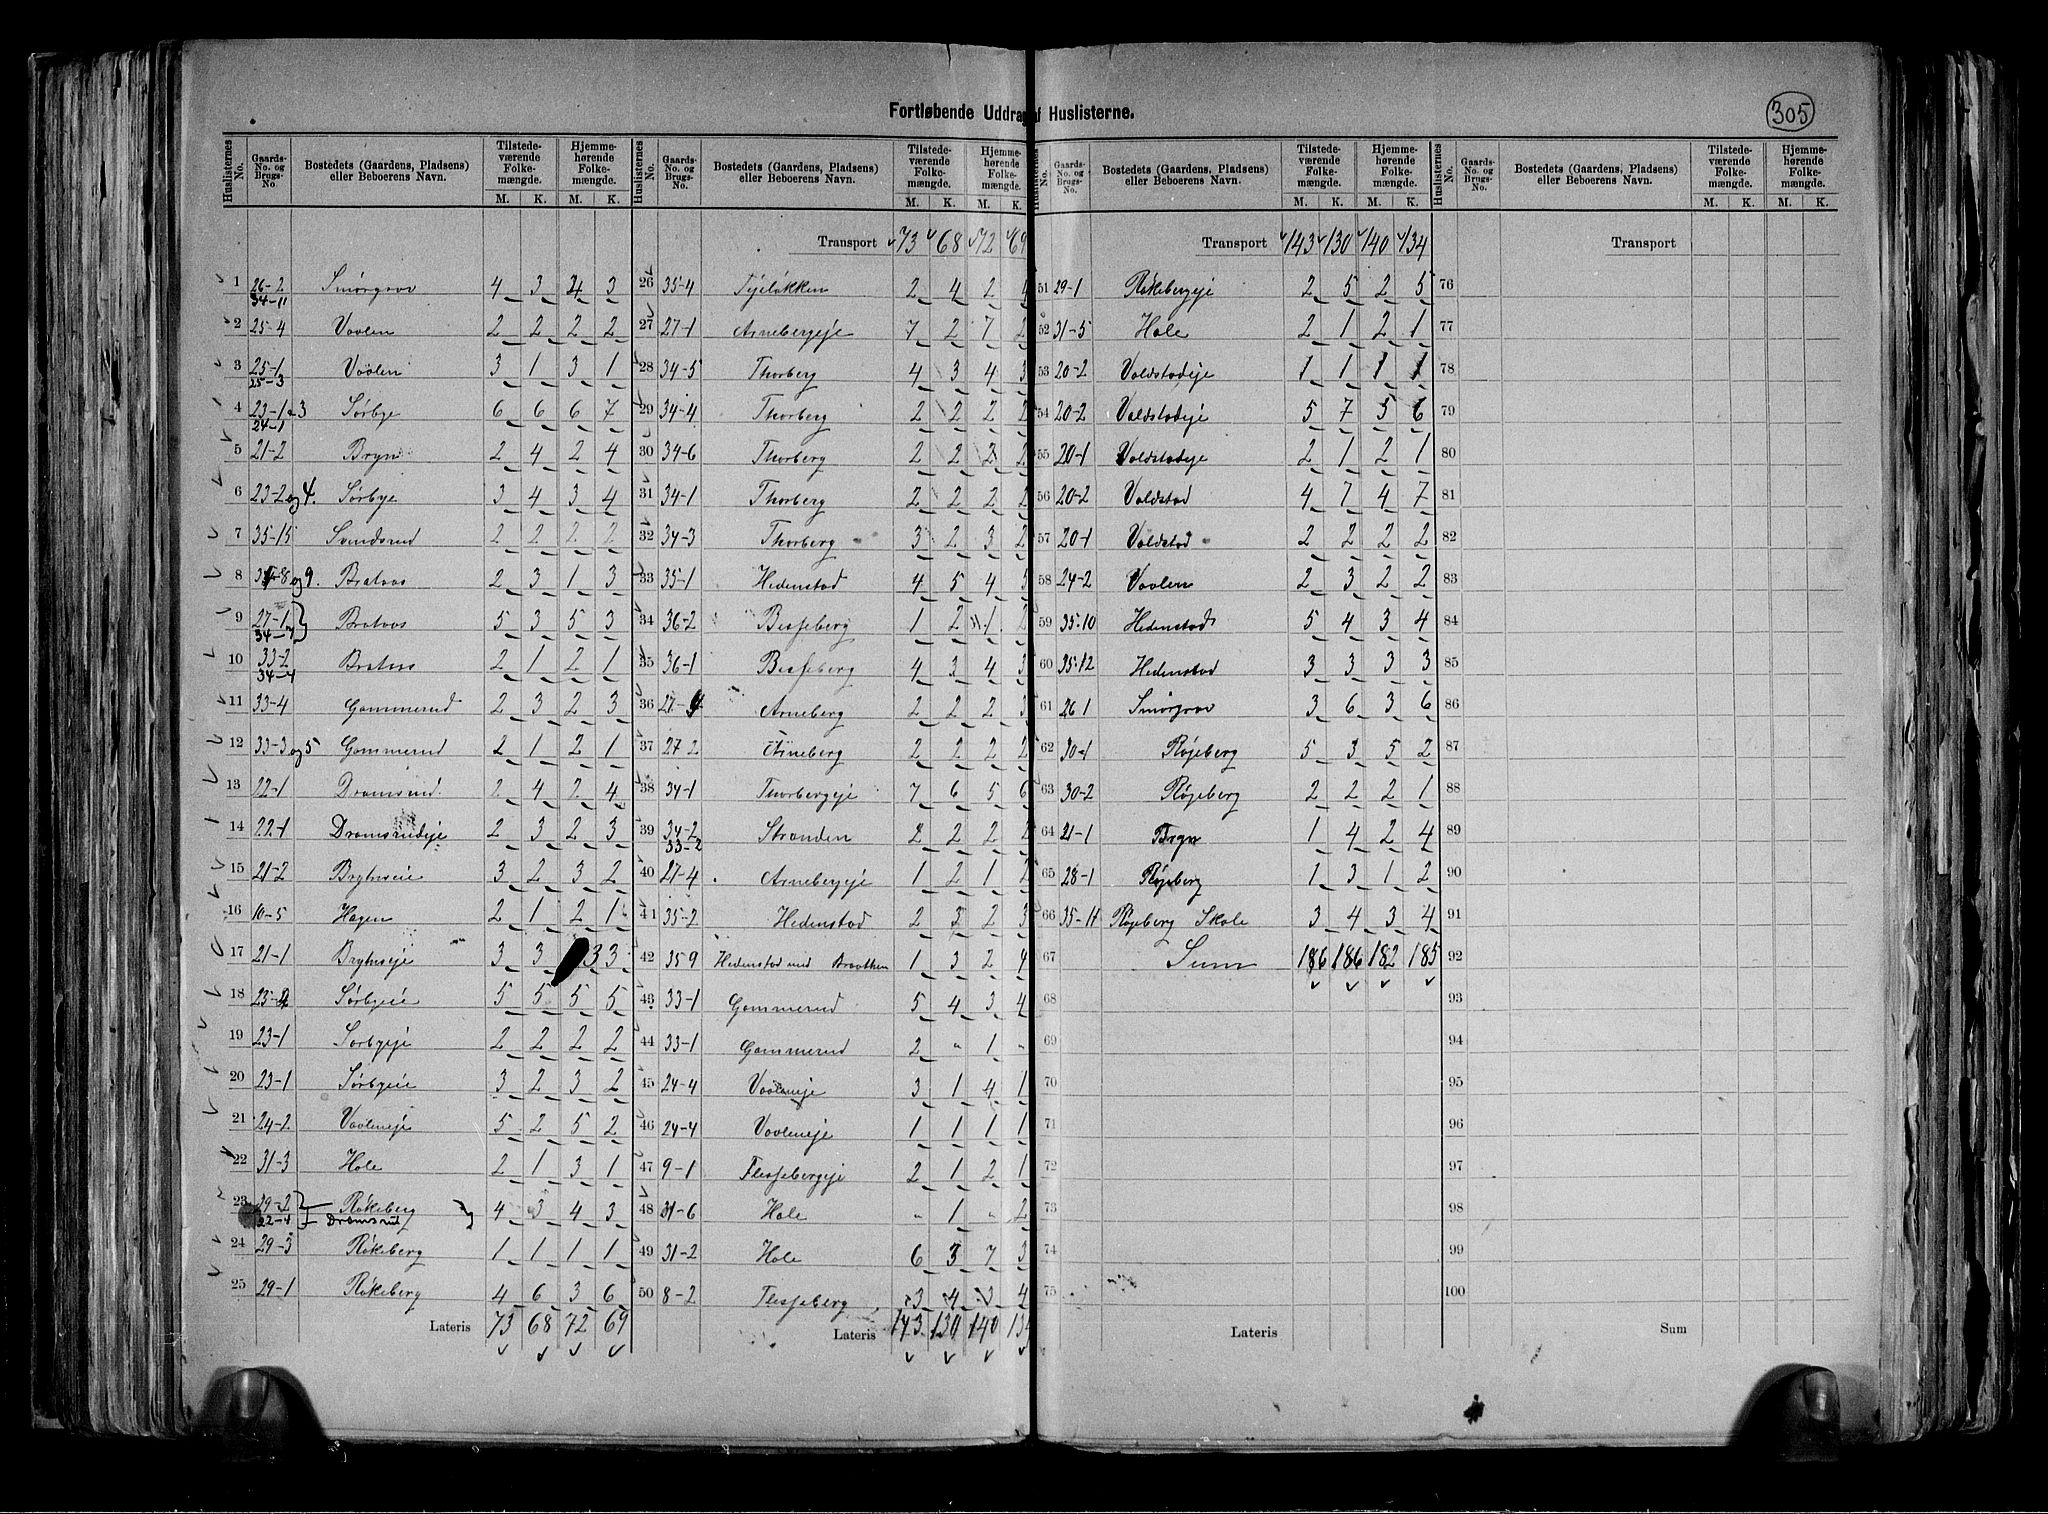 Fortløbende Uddrag af Huslisterne.
305
Huslisternes No. Gaards-No. og Brugs-No. Bostedets (Gaardens, Pladsens) eller Beboerens Navn. Tilstedeværende Folkemængde. M. K. Hjemmehørende Folkemængde. M. K.
1 26-2 34-11 Smørgrav 4 3 4 3
2 25-4 Vaalen 2 2 2 2
3 25-1 25-3 Vaalen 3 1 3 1
4 23-1&3 24-1 Sørbye 6 6 6 7
5 21-2 Bryn 2 4 2 4
6 23-2 og 4. Sørbye 3 4 3 4
7 35-15 Svendsrud 2 2 2 2
8 34-8 og 9. Brataas 2 3 1 3
9 27-1 34-7 } Brataas 5 3 5 3
10 33-2 34-4 Brataas 2 1 2 1
11 33-4 Gommerud 2 3 2 3
12 33-3 og 5 Gommerud 2 1 2 1
13 22-1 Dramsrud 2 4 2 4
14 22-1 Dramsrudeje 2 3 2 3
15 21-2 Brynseie 3 2 3 2
16 10-5 Hagen 2 1 2 1
17 21-1 Brynseje 3 3 3 3
18 23-2 Sørbyeie 5 5 5 5
19 23-1 Sørbyeje 2 2 2 2
20 23-1 Sørbyeie 3 2 3 2
21 24-2 Vaaleneje 5 2 5 2
22 31-3 Hole 2 1 3 1
23 29-2 22-4 } Røkeberg Dramsrud 4 3 4 3
24 29-3 Røkeberg 1 1 1 1
25 29-1 Røkeberg 4 6 3 6
Lateris 73 68 72 69
Huslisternes No. Gaards-No. og Brugs-No. Bostedets (Gaardens, Pladsens) eller Beboerens Navn. Tilstedeværende Folkemængde. M. K. Hjemmehørende Folkemængde. M. K.
Transport 73 68 72 69
26 35-4 2 4 2 4
27 27-1 Arnebergeje 7 2 7 2
28 34-5 Thorberg 4 3 4 3
29 34-4 Thorberg 2 2 2 2
30 34-6 Thorberg 2 2 2 2
31 34-1 Thorberg 2 2 2 2
32 34-3 Thorberg 3 2 3 2
33 35-1 Hedenstad 4 5 4 5
34 36-2 Besseberg 1 2 1 2
35 36-1 Besseberg 4 3 4 3
36 27-4 Arneberg 2 2 2 3
37 27-2 Arneberg 2 2 2 2
38 34-1 Thorbergeje 7 6 5 6
39 34-2 33-2 Stranden 2 2 2 2
40 27-4 Arnebergeje 1 2 1 2
41 35-2 Hedenstad 2 3 2 3
42 35 9 Hedenstad med Braathen 1 3 2 4
43 33-1 Gommerud 5 4 3 4
44 33-1 Gommerud 2 " 1 "
45 24-4 Vaaleneje 3 1 4 1
46 24-4 Vaaleneje 1 1 1 1
47 9-1 Flesjebergeje 2 1 2 1
48 31-6 Hole " 1 " 2
49 31-2 Hole 6 3 7 3
50 8-2 Flesjeberg 3 4 3 4
Lateris 143 130 140 134
Huslisternes No. Gaards-No. og Brugs-No. Bostedets (Gaardens, Pladsens) eller Beboerens Navn. Tilstedeværende Folkemængde. M. K. Hjemmehørende Folkemængde. M. K.
Transport 143 130 140 134
51 29-1 Røkebergeje 2 5 2 5
52 31-5 Hole 2 1 2 1
53 20-2 Valdstadeje 1 1 1 1
54 20-2 Valdstadeje 5 7 5 6
55 20-1 Valdstadeje 2 1 2 1
56 20-2 Valdstad 4 7 4 7
57 20-1 Valdstad 2 2 2 2
58 24-2 Vaalen 2 3 2 2
59 35-10 Hedenstad 5 4 3 4
60 35-12 Hedenstad 3 3 3 3
61 26 1 Smørgrav 3 6 3 6
62 30-1 Røjeberg 5 3 5 2
63 30-2 Røjeberg 2 2 2 1
64 21-1 Bryn 1 4 2 4
65 28-1 Røjeberg 1 3 1 2
66 35-11 Røjeberg Skole 3 4 3 4
67 Sum 186 186 182 185
68
69
70
71
72
73
74
75
Lateris
Huslisternes No. Gaards-No. og Brugs-No. Bostedets (Gaardens, Pladsens) eller Beboerens Navn. Tilstedeværende Folkemængde. M. K. Hjemmehørende Folkemængde. M. K.
Transport
76
77
78
79
80
81
82
83
84
85
86
87
88
89
90
91
92
93
94
95
96
97
98
99
100
Sum